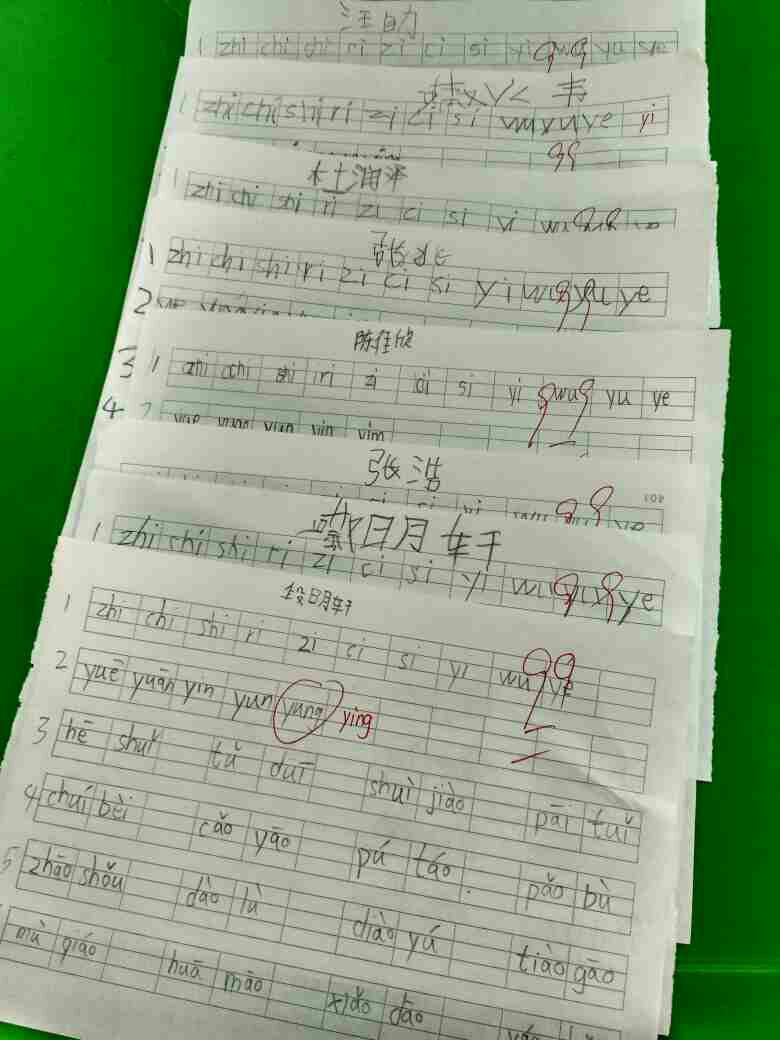 汪自力
1 zhi chi shi ri zi ci si yi wu yu ye
99
1 zhi chi shi ri zi ci si wu yu ye yi
99
杜润泽
1 zhi chi shi ri zi ci si yi wu
99
张
1 zhi chi shi ri zi ci si yi wu yu ye
99
2
陈佳欣
3 1 zhi chi shi ri zi ci si yi wu yu ye
99
4 2 yue yuan yun yin ying
张浩
99
戴明轩
1 zhi chi shi ri zi ci si yi wu yu ye
99
段明轩
1 zhi chi shi ri zi ci si yi wu ye
99
2 yuē yuān yin yun yung ying
3 hē shuǐ tǔ duī shuì jiào pāi tuǐ
4 chuí bèi cǎo yāo pú táo pǎo bù
5 zhāo shǒu dào lù diào yú tiào gāo
mù giáo huā māo xiǎo dāo